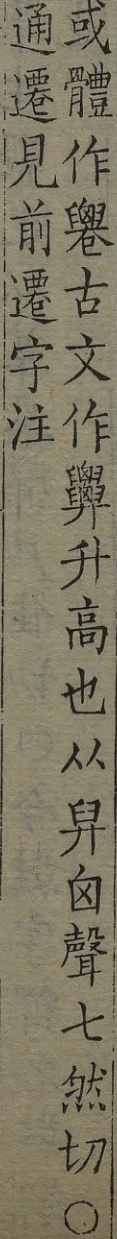 或體作𦦓古文作𦦨升高也从舁囟聲七然切○
通遷見前遷字注